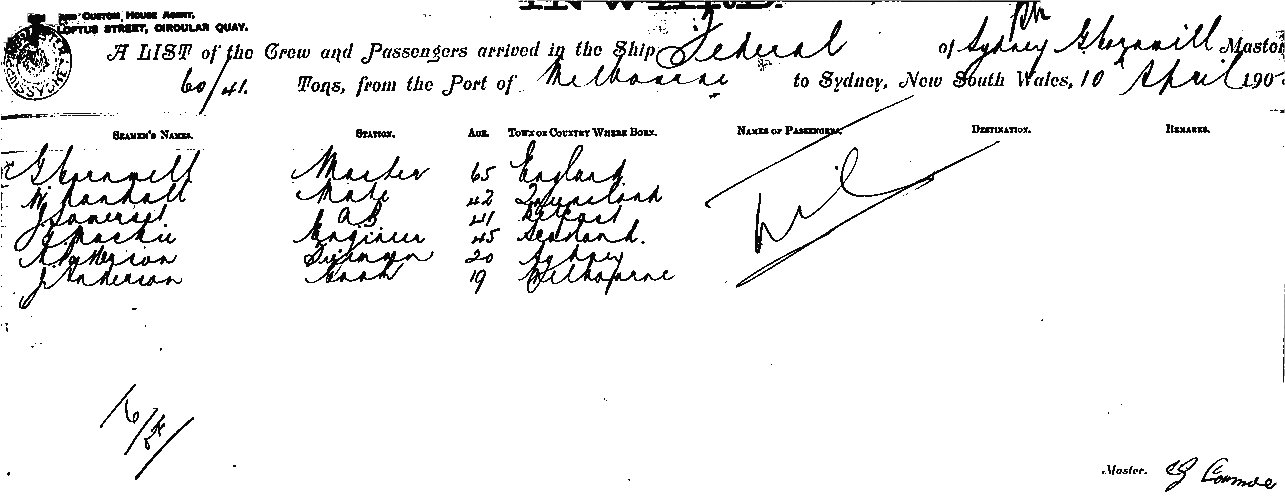 INWARD.
AND CUSTOM HOUSE AGENT,
LOFTUS STREET, CIRCULAR QUAY.
A LIST of the Crew and Passengers arrived in the Ship Federal of Sydney G Cornwill Master
60/41 Tons, from the Port of Melbourne to Sydney, New South Wales, 10 April 190
SEAMEN'S NAMES. STATION. AGE. TOWN OR COUNTRY WHERE BORN. NAMES OF PASSENGERS. DESTINATION. REMARKS.
G Cornwill Master 65 England
W Mate 42 Queensland
J Somerset AB 41 Belfast
J Mackie Engineer 45 Scotland.
Fireman 20 Sydney
J Anderson Cook 19 Melbourne
Nil
Master. G